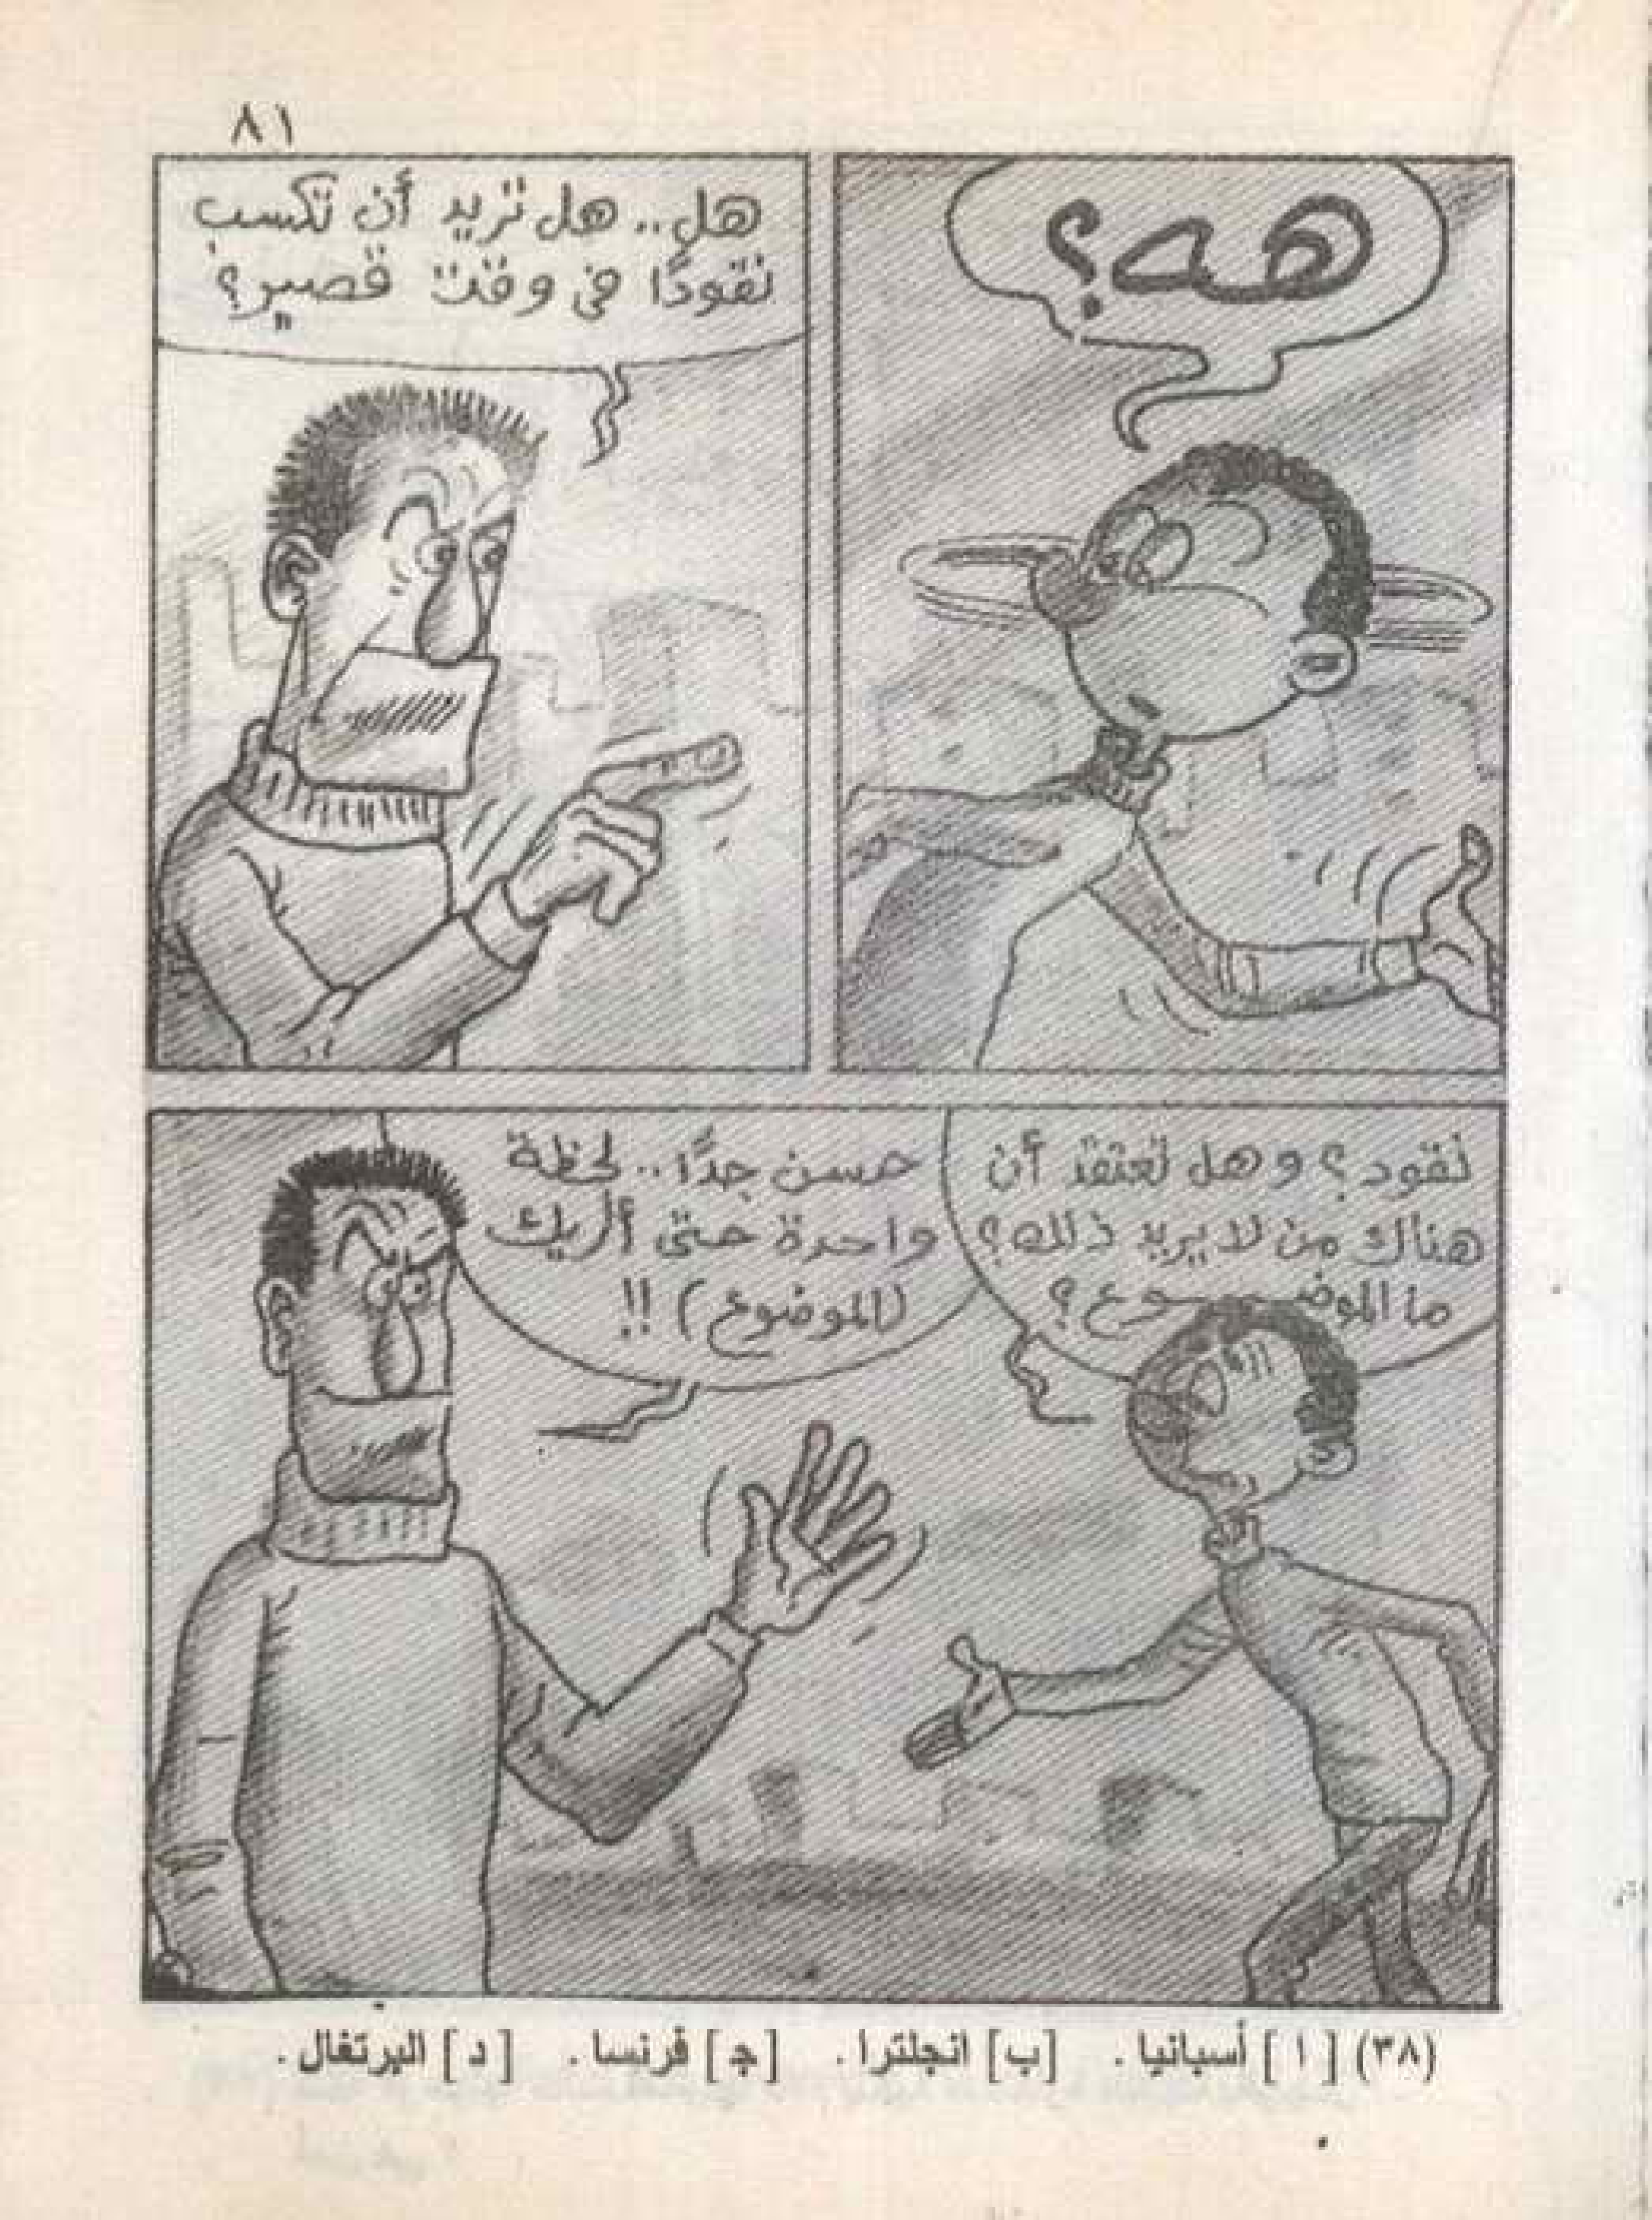 ٨١
هه؟
هل.. هل تريد أن تكسب
نقودًا فى وقت قصير؟
نقود؟ وهل تعتقد أن
هناك من لا يريد ذلك؟
ما الموضـــوع؟
حسن جدًا.. لحظة
واحدة حتى أريك
(الموضوع)!!
(٣٨) [ ا ] أسبانيا . [ب] انجلترا . [جـ] فرنسا . [ د ] البرتغال .